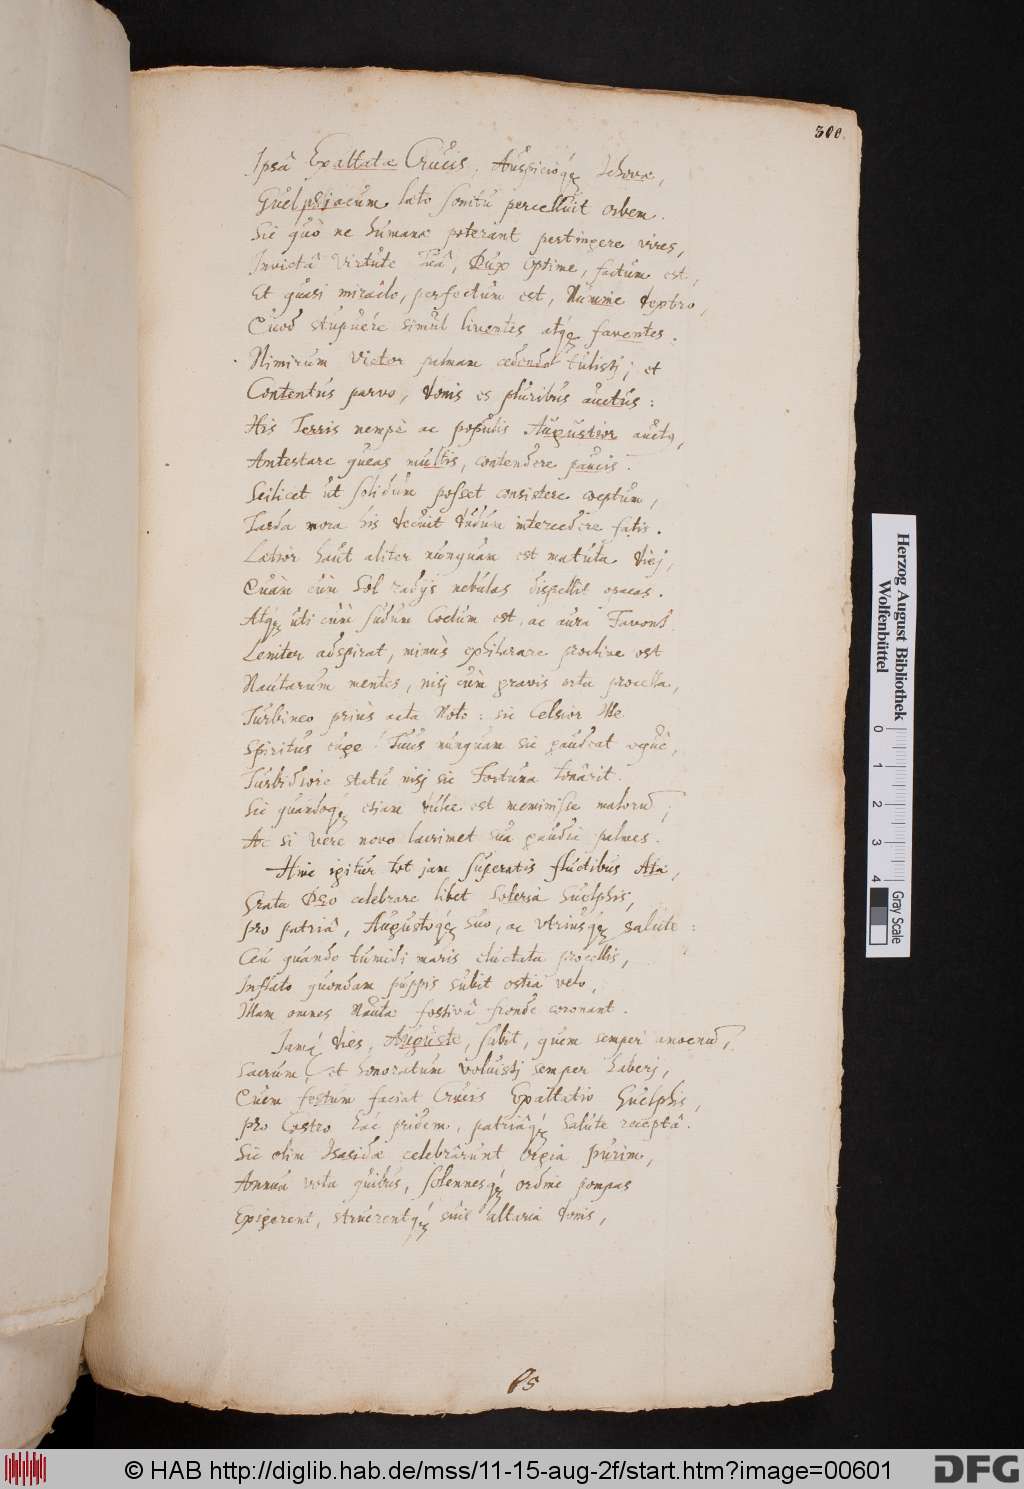 300.
Ipsâ Exaltatæ Crucis, Auspicioq́; Jehovæ,
Guelphiacum læto sonitu percelluit orbem.
Sic quò ne humanæ poterant pertingere vires,
Invictâ Virtute Tuâ, Dux optime, factum est,
Et quasi miraclo, perfectum est, Numine dextro,
Quod stupuére simul liventes atq; faventes.
Nimirum Victor palmam cedendo tulisti; et
Contentus parvo, donis es pluribus auctus:
His Terris nempè ac populis Augustior auctq,
Antestare queas multis, contendere paucis.
Scilicet ut solidum posset consistere cœptum,
Tarda mora his decuit dudum intercedere fatis.
Lætior haut aliter nunquam est matuta diej,
Quàm cùm Sol radijs nebulas dispellit opacas.
Atq; uti cùm sudum Coelum est, ac aura Favonî
Leniter adspirat, minùs exhilarare proclive est
Nautarum mentes, nisj cùm gravis orta procella,
Turbineo priùs acta Noto: sic Celsior Ille
Spiritus euge! Tuus nunquam sic gaudeat
Turbidiore statu nisj sic Fortuna tonârit.
Sic quandoq; etiam dulce est meminisse malorū;
Ac si Vere novo lacrimet sua gaudia palmes.
Hinc igitur tot jam superatis fluctibus Ata,
Grata Deo celebrare libet Soteria Guelphis,
Pro patriâ, Augustoq́; Suo, ac utriusq́; salute:
Ceu quando tumidi maris eluctata procellis,
Inflato quondam puppis subit ostia velo,
Illam omnes Nautæ festivâ fronde coronant.
Jamq́ dies, Auguste, subit, quem semper amoenū,
Sacrum, et honoratum voluistj semper haberj,
Quem festum faciat Crucis Exaltatio Guelphis,
Pro Castro hâc pridem, patriâq́; Salute receptâ.
Sic olim Isacidæ celebrârunt Orgia Purim,
Annua vota quibus, solennesq́; ordine pompas
Exigerent, struerentq́; suis altaria donis,
Herzog August Bibliothek
Wolfenbüttel
0 1 2 3 4
Gray Scale
© HAB http://diglib.hab.de/mss/11-15-aug-2f/start.htm?image=00601
DFG